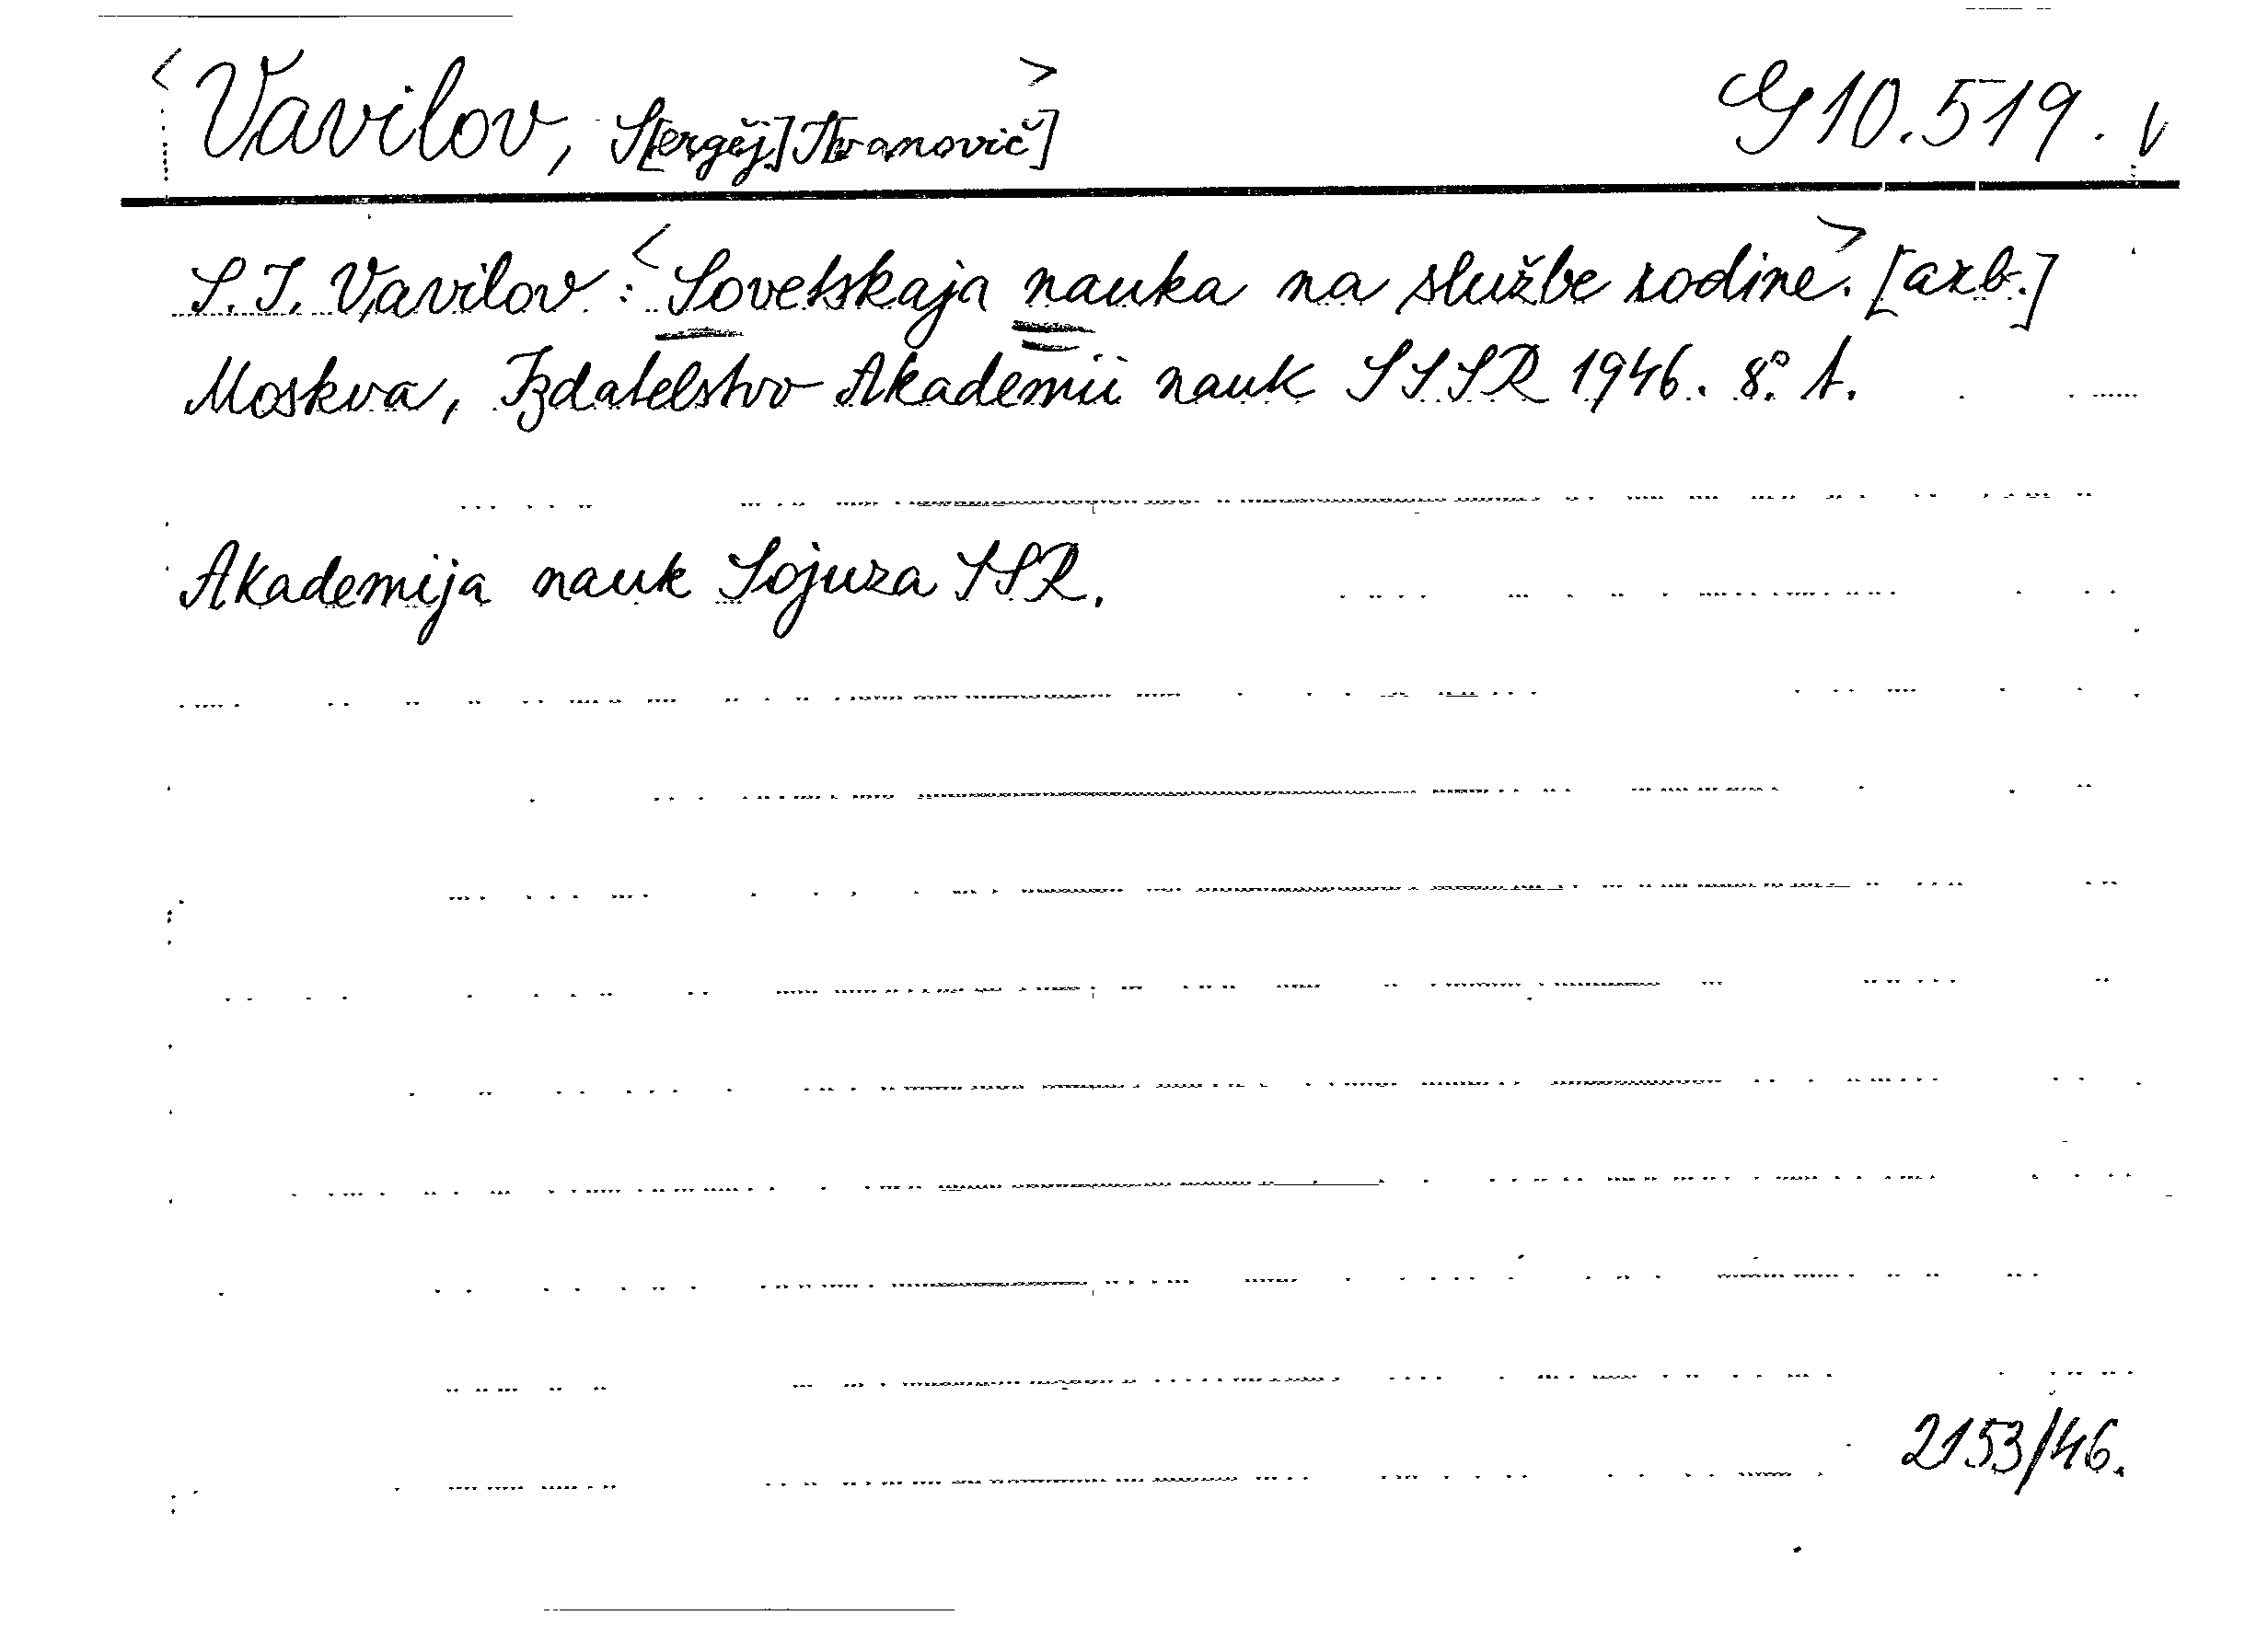 <Vavilov, S[ergěj] I[vanovič]> G 10.519. v
S. I. Vavilov: <Sovetskaja nauka na službe rodine>. [azb.]
Moskva, Izdatelstvo Akademii nauk SSSR 1946. 8°. t.
Akademija nauk Sojuza SSR.
2153/46.